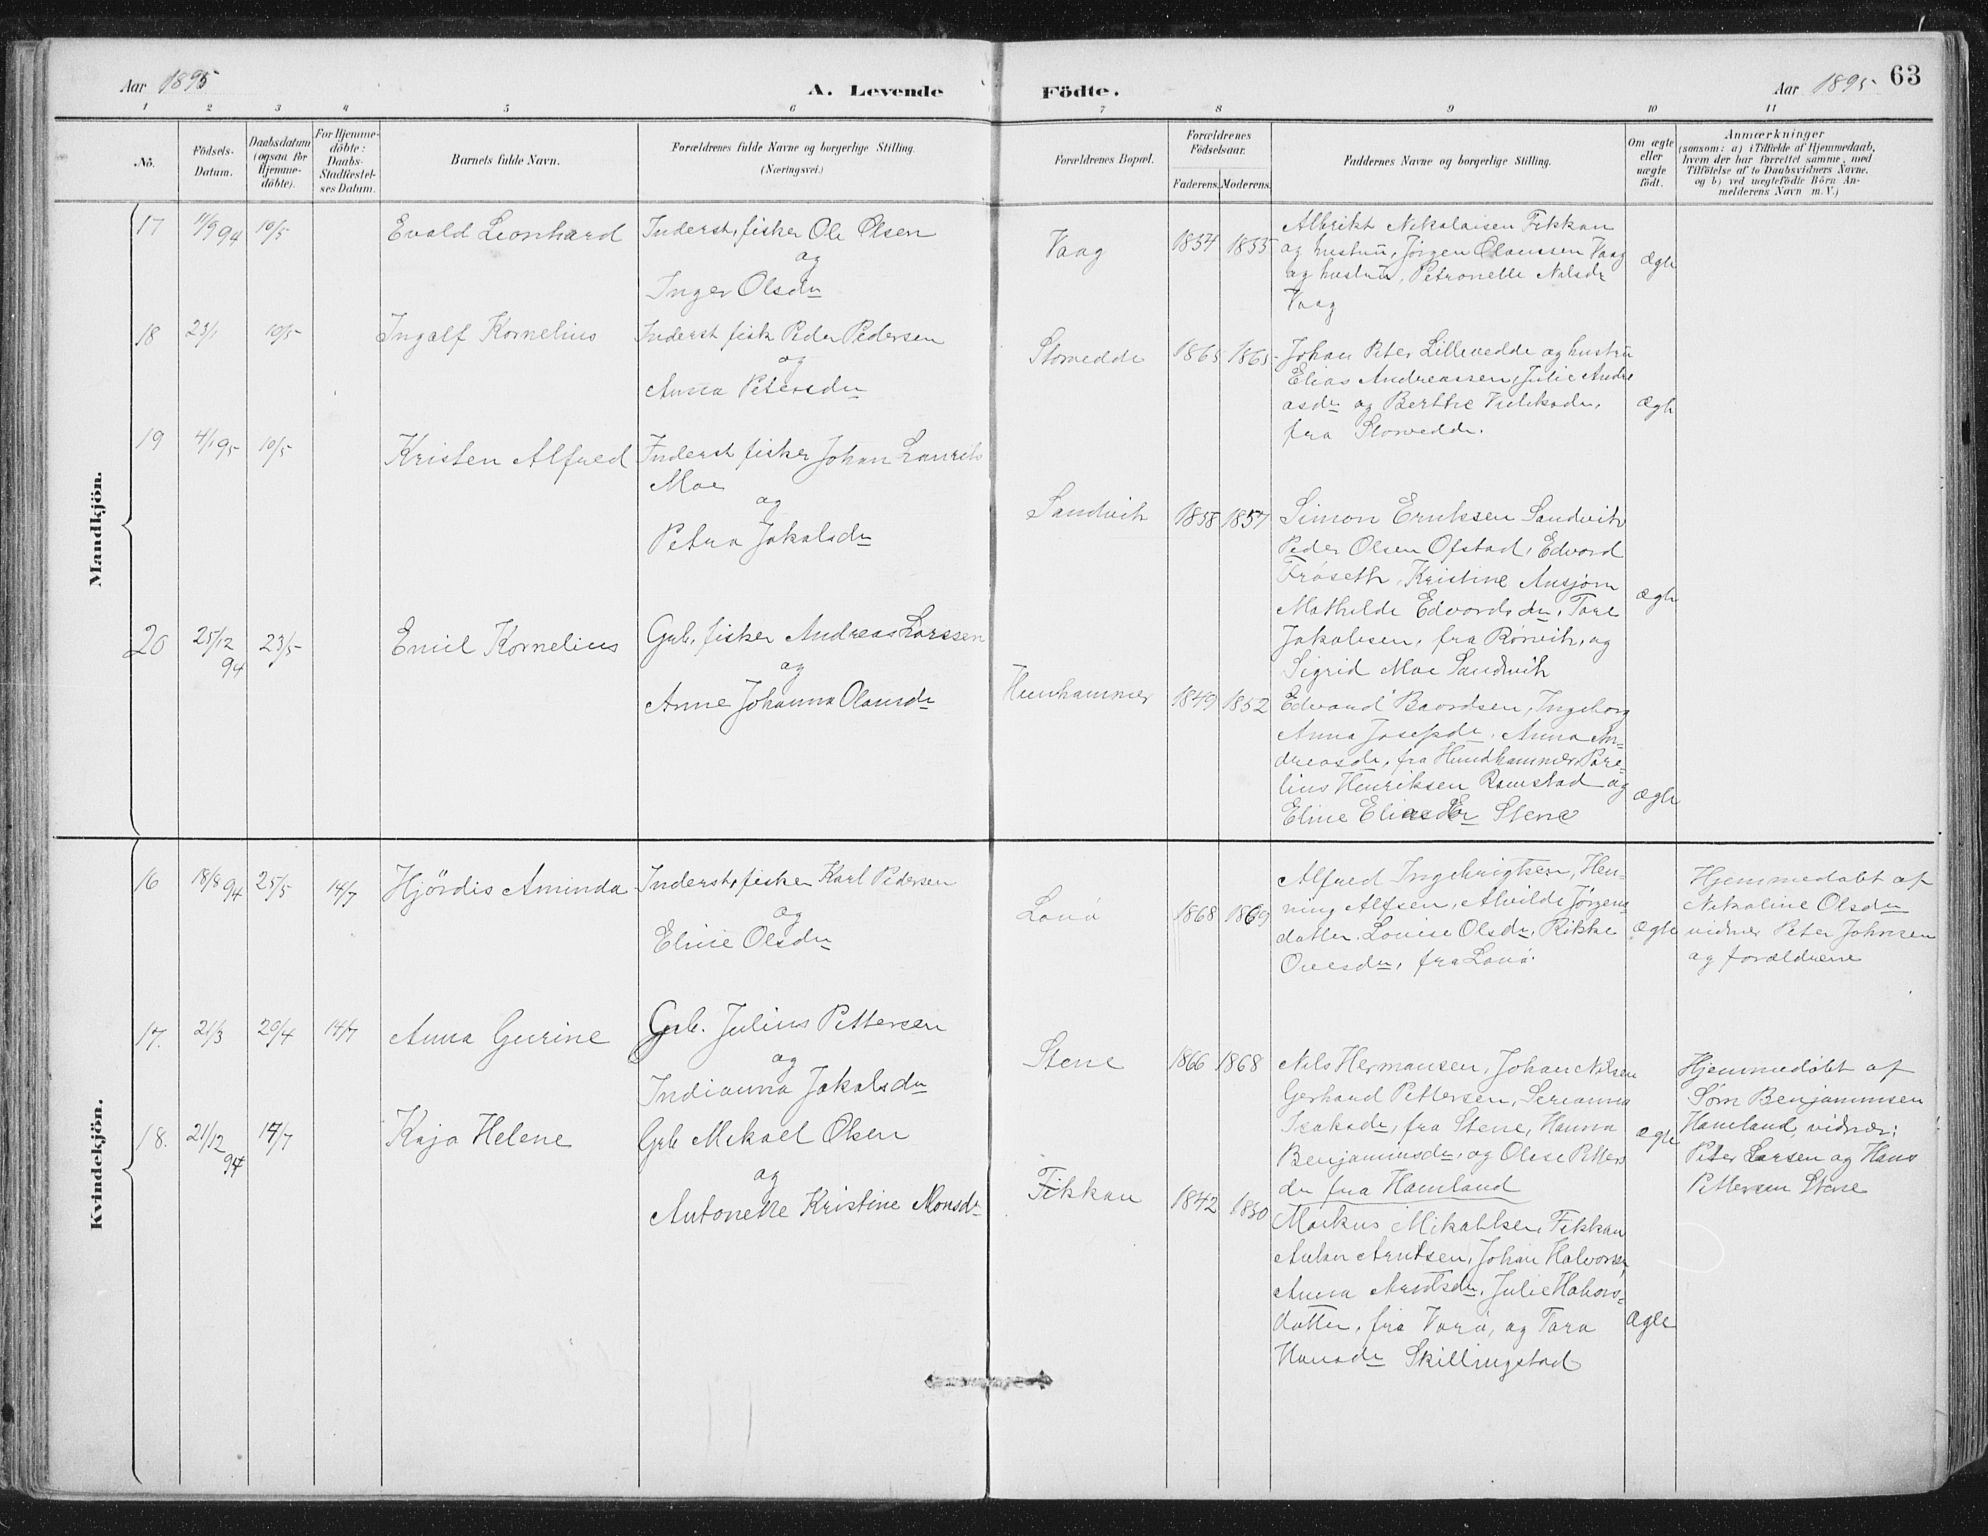 Aar 1895
A. Levende
Födte.
Aar 1895
63
1 2 3 4 5 6 7 8 9 10 11
No.
Födsels-
Datum.
Daabsdatum
(ogsaa for
Hjemme-
döbte).
For Hjemme-
döbte:
Daabs-
Stadfæstel-
ses Datum.
Barnets fulde Navn.
Forældrenes fulde Navne og borgerlige Stilling.
(Næringsvei.)
Forældrenes Bopæl.
Forældrenes
Födselsaar.
Faderens.
Moderens.
Faddernes Navne og borgerlige Stilling.
Om ægte
eller
uægte
födt.
Anmærkninger
(saasom: a) i Tilfælde af Hjemmedaab,
hvem der har forrettet samme, med
Tilföielse af to Daabsvidners Navne.
og b) ved uægtefödte Börn An-
melderens Navn m. V.)
Mandkjön.
17 11/9 94 10/5 Evald Leonhard
Inderst, fisker Ole Olsen
og
Inger Olsdr
Vaag 1854 1855
Albrikt Nikolaisen Fikkan
og hustru, Jørgen Olaussen Vaag
og hustru, Petronelle Nilsdr
Vaag
ægte
18 23/1 10/5 Ingalf Kornelius
Inderst fisk Peder Pedersen
og
Anna Petersdr
Storvedde 1865 1865
Johan Peter Lillevedde og hustru
Elias Andreassen, Julie Andre
asdr og Berthe
fra Storvedde.
ægte
19 4/1 95 10/5 Kristen Alfred
Inderst fisker Johan Laurits
Moe
og
Petra Jakobsdr
Sandvik 1858 1857
Simon Eriksen Sandvik
Peder Olsen Ofstad, Edvard
Frøseth, Kristine Ansjøm
Mathilde Edvardsdr, Tore
Jakobsen, fra Rørvik, og
Sigrid Moe Sandvik
ægte
20 25/12 94 23/5 Emil Kornelius
Grb. fisker Andreas Larssen
og
Anne Johanna Olausdr
Hunhammer 1849 1852
Edvard Baardsen, Ingeborg
Anna Josefsdr. Anna An-
dreasdr, fra Hundhammer, Pare-
lius Henriksen Ramstad og
Eline Eliasdr Stene
ægte
Kvindekjön.
16 18/8 94 25/5 14/7 Hjördis Aminda
Inderst, fisker Karl Pedersen
og
Eline Olsdr
Lauø 1868 1869
Alfred Ingebrigtsen, Hen-
ning Alfsen, Alvilde Jørgens
datter, Lovise Olsdr, Rikke
Ovesdr, fra Lauø.
ægte
Hjemmedøbt af
Nikoline Olsdr
vidner Peter Johnsen
og forældrene
17. 21/3 20/4 14/7 Anna Gurine
Grb. Julius Pettersen
og
Indianna Jakobsdr
Stene 1866 1868
Nils Hermansen, Johan Nilsen
Gerhard Pettersen, Serianna
Isaksdr, fra Stene, Hanna
Benjaminsdr, og Olise Petters
dr fra Hamland
ægte
Hjemmedøbt af
Sørn Benjaminsen
Hamland, vidner:
Peter Larsen og Hans
Pettersen Stene
18. 21/12 94 14/7 Kaja Helene
Grb Mikael Olsen
og
Antonette Kristine Monsdr
Fikkan 1842 1850
Markus Mikalsen, Fikkan
Anton Arntsen, Johan Halvorsen,
Anna Arntsdr, Julie Halvors-
datter, fra Varø, og Tora
Hansdr Skillingstad
ægte